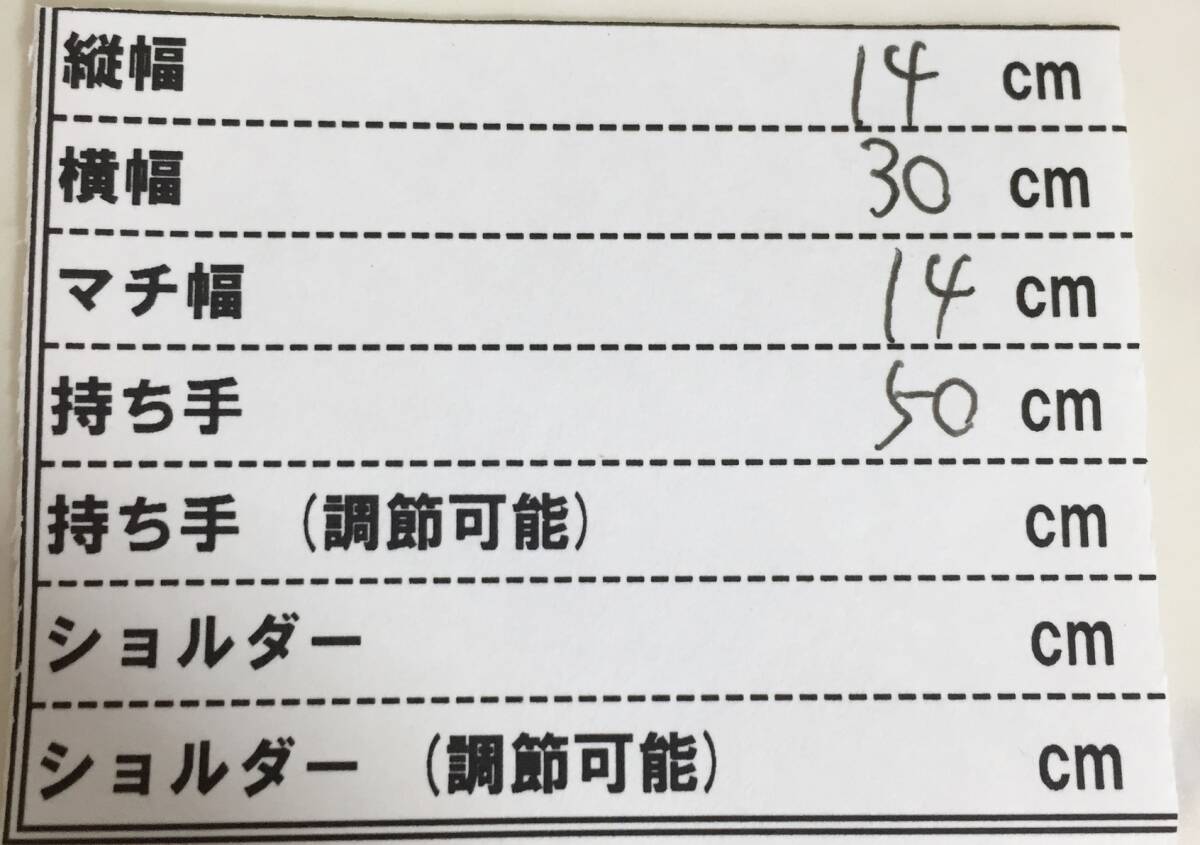 縦幅 14 cm
横幅 30 cm
マチ幅 14 cm
持ち手 50 cm
持ち手 (調節可能) cm
ショルダー cm
ショルダー (調節可能) cm